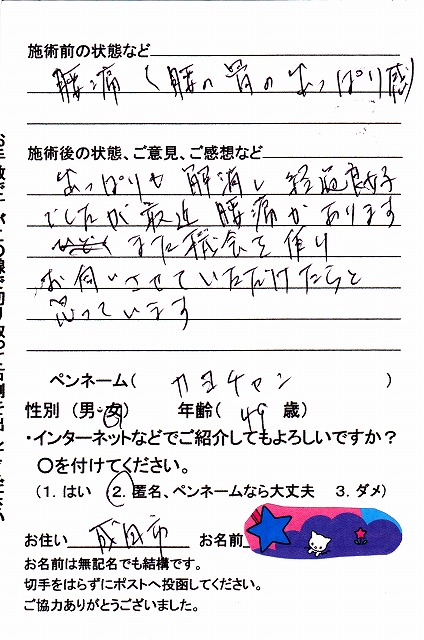 施術前の状態など
腰痛(腰の骨の出っぱり感)
施術後の状態、ご意見、ご感想など
出っぱりも解消し経過良好
でしたが最近腰痛があります
また機会を作り
お伺いさせていただけたらと
思っています
ペンネーム( カヨチャン )
性別 (男・女) 年齢( 49 歳)
・インターネットなどでご紹介してもよろしいですか?
〇を付けてください。
(1. はい 2. 匿名、ペンネームなら大丈夫 3. ダメ)
お住い 成田市 お名前
お名前は無記名でも結構です。
切手をはらずにポストへ投函してください。
ご協力ありがとうございました。